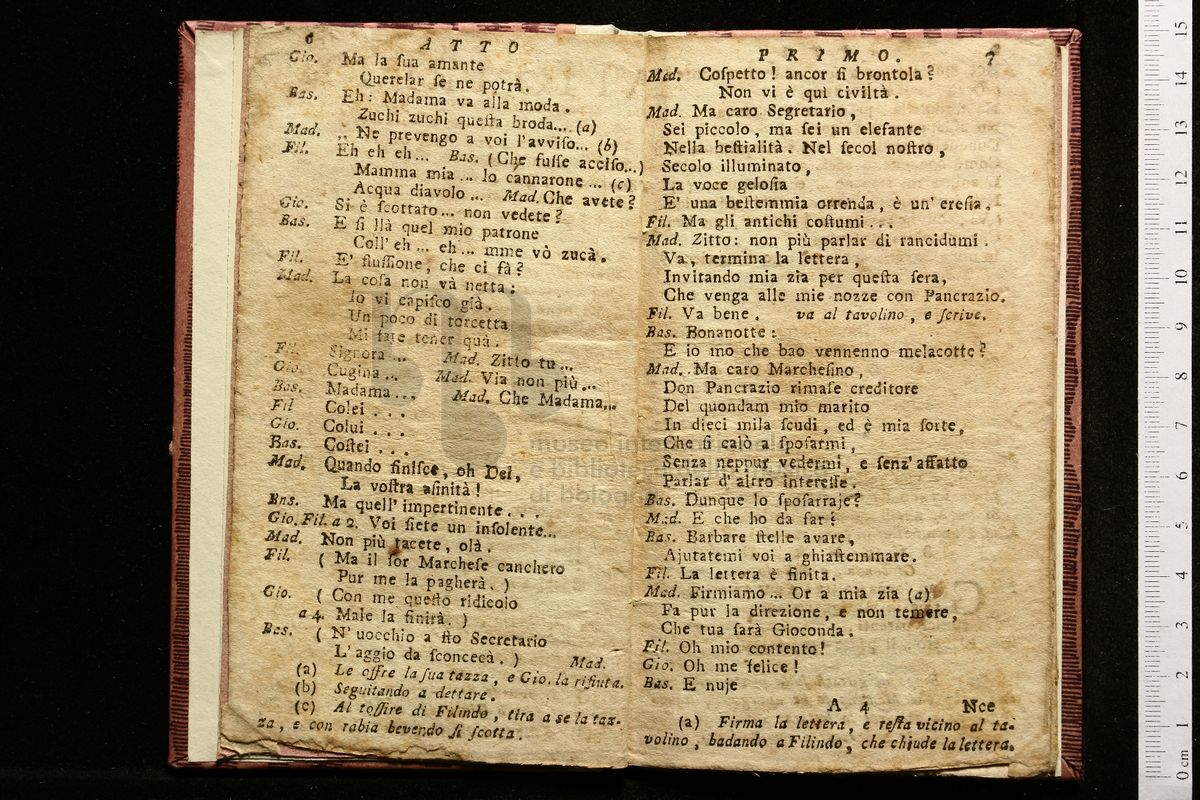 6 ATTO
Gio. Ma la ſua amante
Querelar ſe ne potrà.
Bas. Eh: Madama va alla moda.
Zuchi zuchi queſta broda... (a)
Mad. ,, Ne prevengo a voi l'avviſo... (b)
Fil. Eh eh eh... Bas. (Che fuſſe acciſo...)
Mamma mia... lo cannarone... (c)
Acqua diavolo... Mad. Che avete?
Gio. Si è ſcottato... non vedete?
Bas. E ſi llà quel mio patrone
Coll' eh... eh... mme vò zucà.
Fil. E' fluſſione, che ci fà?
Mad. La coſa non và netta:
Io vi capiſco già.
Un poco di torcetta
Mi fate tener quà.
Fil. Signora... Mad. Zitto tu...
Gio. Cugina... Mad. Via non più...
Bas. Madama... Mad. Che Madama...
Fil Colei...
Gio. Colui...
Bas. Coſtei...
Mad. Quando finiſce, oh Dei,
La voſtra aſinità!
Bas. Ma quell' impertinente...
Gio. Fil. a 2. Voi ſiete un inſolente...
Mad. Non più tacete, olà.
Fil. (Ma il ſor Marcheſe canchero
Pur me la pagherà.)
Gio. (Con me queſto ridicolo
a 4. Male la finirà.)
Bas. (N' uocchio a ſto Secretario
L' aggio da ſconcecà.) Mad.
(a) Le offre la ſua tazza, e Gio. la rifiuta.
(b) Seguitando a dettare.
(c) Al toſſire di Filindo, tira a se la taz-
za, e con rabia bevendo ſi ſcotta.
PRIMO. 7
Mad. Coſpetto! ancor ſi brontola?
Non vi è quì civiltà.
Mad. Ma caro Segretario,
Sei piccolo, ma ſei un elefante
Nella beſtialità. Nel ſecol noſtro,
Secolo illuminato,
La voce geloſia
E' una beſtemmia orrenda, è un' ereſia.
Fil. Ma gli antichi coſtumi...
Mad. Zitto: non più parlar di rancidumi.
Va, termina la lettera,
Invitando mia zia per queſta ſera,
Che venga alle mie nozze con Pancrazio.
Fil. Va bene. va al tavolino, e ſcrive.
Bas. Bonanotte:
E io mo che bao vennenno melacotte?
Mad. Ma caro Marcheſino,
Don Pancrazio rimaſe creditore
Del quondam mio marito
In dieci mila ſcudi, ed è mia ſorte,
Che ſi calò a ſpoſarmi,
Senza neppur vedermi, e ſenz' affatto
Parlar d' altro intereſſe.
Bas. Dunque lo ſpoſarraje?
Mad. E che ho da far?
Bas. Barbare ſtelle avare,
Ajutatemi voi a ghiaſtemmare.
Fil. La lettera è finita.
Mad. Firmiamo... Or a mia zia (a)
Fa pur la direzione, e non temere,
Che tua ſarà Gioconda.
Fil. Oh mio contento!
Gio. Oh me felice!
Bas. E nuje
A 4 Nce
(a) Firma la lettera, e reſta vicino al ta-
volino, badando a Filindo, che chiude la lettera.
museo
e biblio
di bolog
15
14
13
12
11
10
9
8
7
6
5
4
3
2
1
0 cm